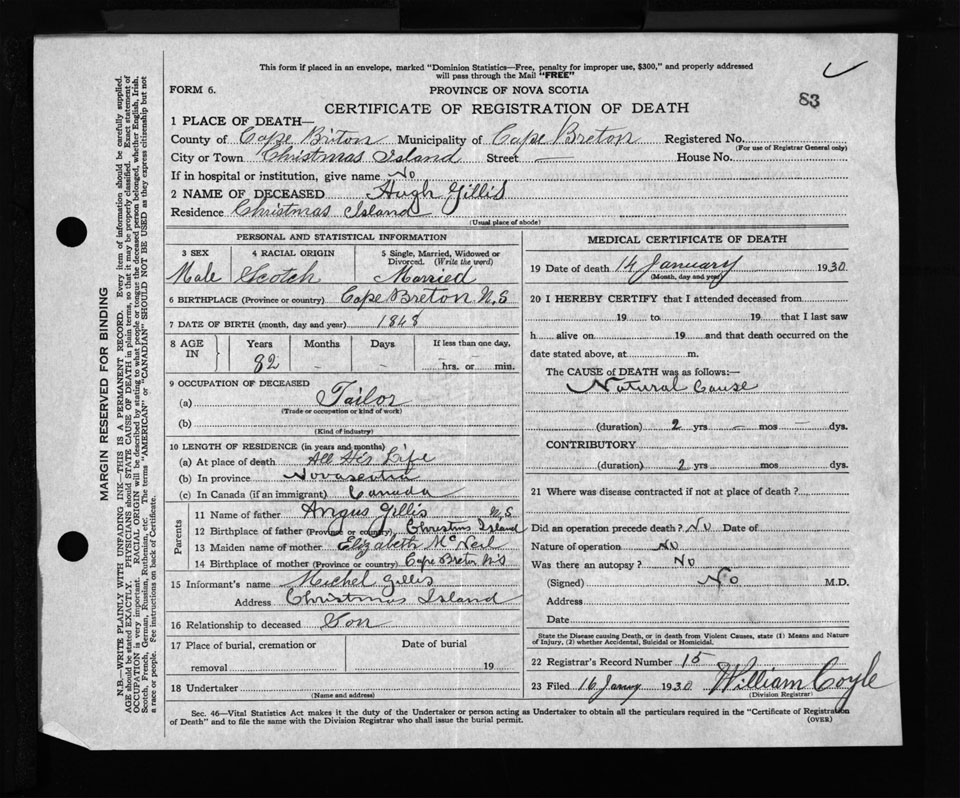 This form if placed in an envelope, marked "Dominion Statistics—Free, penalty for improper use, $300," and properly addressed
will pass through the Mail "FREE"
FORM 6. PROVINCE OF NOVA SCOTIA
83
CERTIFICATE OF REGISTRATION OF DEATH
1 PLACE OF DEATH—
County of Cape Briton Municipality of Cape Breton Registered No.
(For use of Registrar General only)
City or Town Christmas Island Street — House No.
If in hospital or institution, give name No
2 NAME OF DECEASED Hugh Gillis
Residence Christmas Island
(Usual place of abode)
PERSONAL AND STATISTICAL INFORMATION
3 SEX 4 RACIAL ORIGIN 5 Single, Married, Widowed or
Divorced. (Write the word)
Male Scotch Married
6 BIRTHPLACE (Province or country) Cape Breton N,S
7 DATE OF BIRTH (month, day and year) 1848
8 AGE IN Years Months Days If less than one day,
82 - - hrs. or min.
9 OCCUPATION OF DECEASED
(a) Tailor
(Trade or occupation or kind of work)
(b)
(Kind of industry)
10 LENGTH OF RESIDENCE (in years and months)
(a) At place of death All His Life
(b) In province Novascotia
(c) In Canada (if an immigrant) Canada
Parents
11 Name of father Angus Gillis N,S
12 Birthplace of father (Province or country) Christms Island
13 Maiden name of mother Elizabeth McNeil
14 Birthplace of mother (Province or country) Cape Breton N'S
15 Informant's name Michel Gillis
Address Christmas Island
16 Relationship to deceased Son
17 Place of burial, cremation or Date of burial
removal 19
18 Undertaker
(Name and address)
MEDICAL CERTIFICATE OF DEATH
19 Date of death 14 January 1930
(Month, day and year)
20 I HEREBY CERTIFY that I attended deceased from
19 to 19 that I last saw
h alive on 19 and that death occurred on the
date stated above, at m.
The CAUSE of DEATH was as follows:—
Natural Cause
(duration) 2 yrs — mos — dys.
CONTRIBUTORY
(duration) 2 yrs. mos. dys.
21 Where was disease contracted if not at place of death?
Did an operation precede death? No Date of
Nature of operation No
Was there an autopsy? No
(Signed) No M.D.
Address
Date
State the Disease causing Death, or in death from Violent Causes, state (1) Means and Nature
of Injury, (2) whether Accidental, Suicidal or Homicidal.
22 Registrar's Record Number 15
23 Filed 16 Jany 1930 William Coyle
(Division Registrar)
Sec. 46—Vital Statistics Act makes it the duty of the Undertaker or person acting as Undertaker to obtain all the particulars required in the "Certificate of Registration
of Death" and to file the same with the Division Registrar who shall issue the burial permit. (OVER)
MARGIN RESERVED FOR BINDING
N.B.—WRITE PLAINLY WITH UNFADING INK—THIS IS A PERMANENT RECORD. Every item of information should be carefully supplied.
AGE should be stated EXACTLY. PHYSICIANS should STATE CAUSE OF DEATH in plain terms, so that it may be properly classified. Exact statement of
OCCUPATION is very important. RACIAL ORIGIN will be described by stating to what people or tongue the deceased person belonged, whether English, Irish,
Scotch, French, German, Russian, Ruthenian, etc. The terms "AMERICAN" or "CANADIAN" SHOULD NOT BE USED as they express citizenship but not
a race or people. See instructions on back of Certificate.